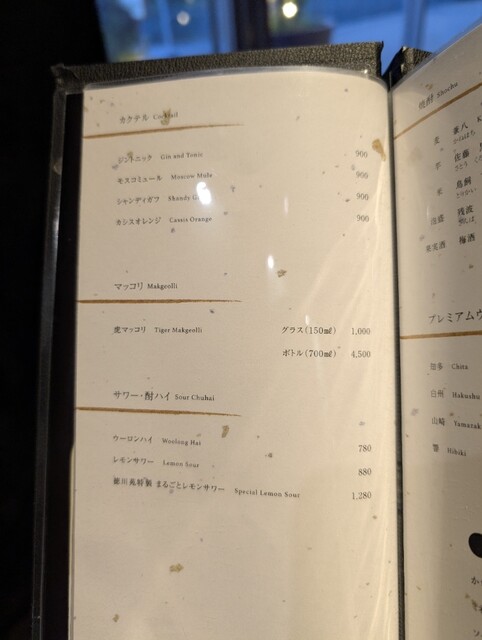 カクテル Cocktail
ジントニック Gin and Tonic 900
モスコミュール Moscow Mule 900
シャンディガフ Shandy 900
カシスオレンジ Cassis Orange 900
マッコリ Makgeolli
虎マッコリ Tiger Makgeolli グラス(150㎖) 1,000
ボトル(700㎖) 4,500
サワー・酎ハイ Sour Chuhai
ウーロンハイ Woolong Hai 780
レモンサワー Lemon Sour 880
まるごとレモンサワー Special Lemon Sour 1,280
焼酎 Shochu
麦 兼八
芋 佐藤
米 鳥飼
泡盛 残波
果実酒 梅酒
プレミアムウ
知多 Chita
白州 Hakushu
山崎 Yamazak
響 Hibiki